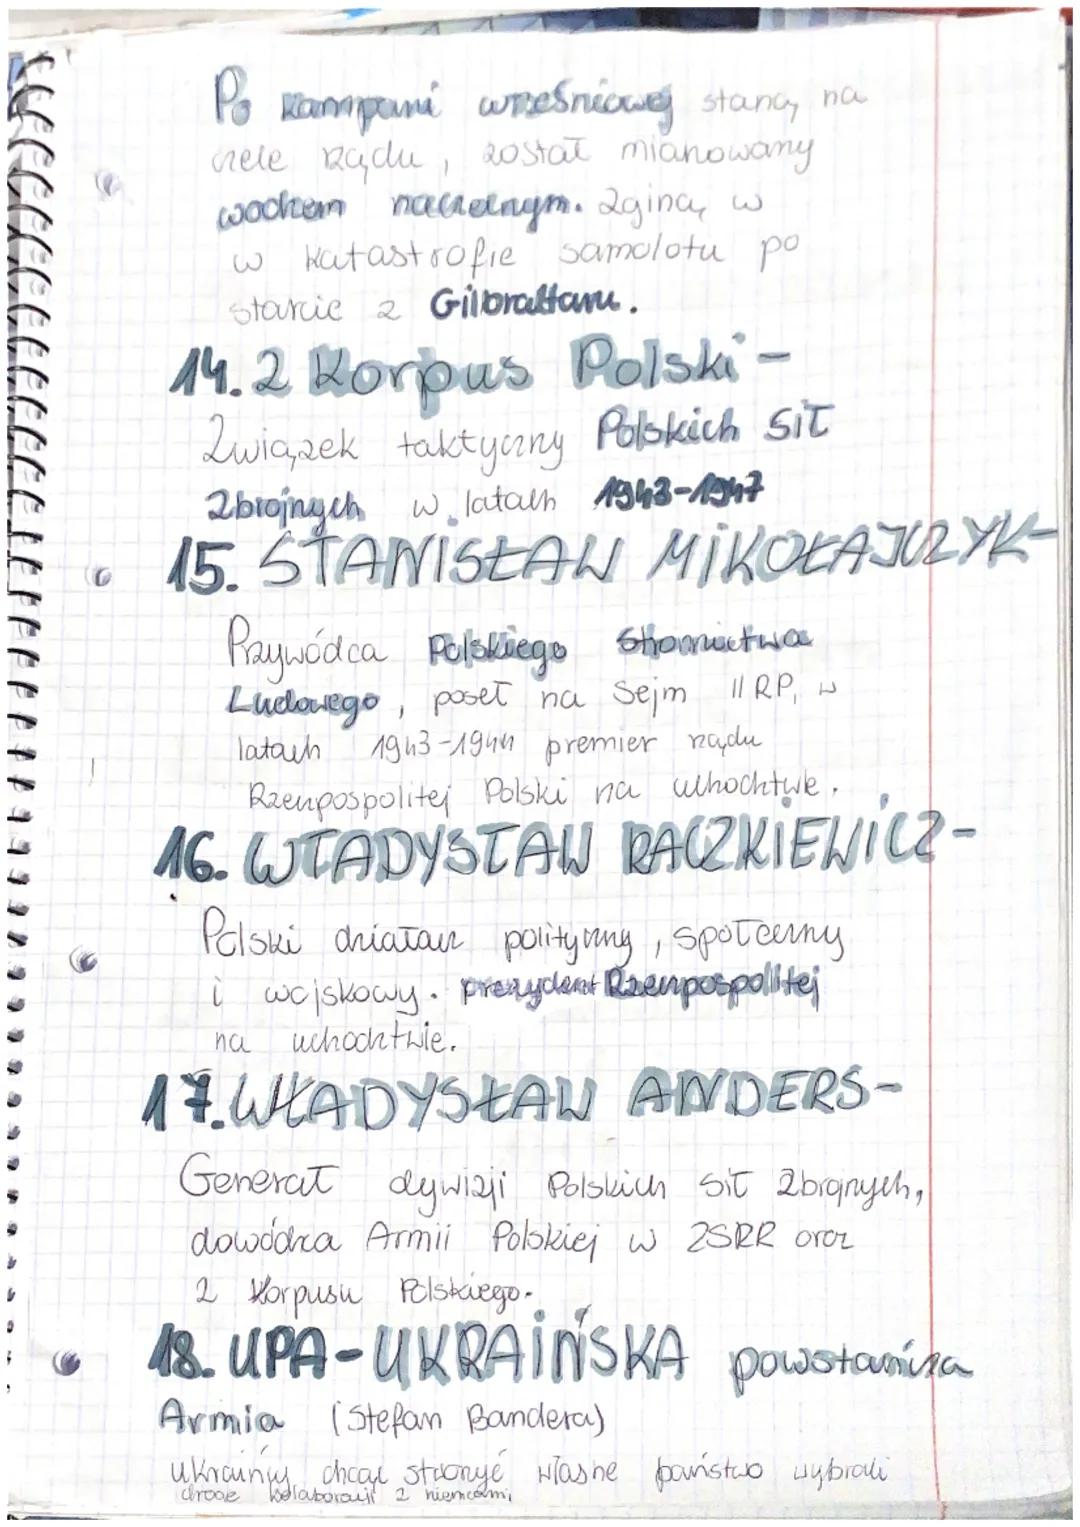 Po kampani wrześniowej staną na
czele rządu, został mianowany
wodzem naczelnym. Zginą w
w katastrofie samolotu po
starcie z Gilbraltaru.
14. 2 Korpus Polski -
Związek taktyczny Polskich Sił
Zbrojnych w latach 1943-1947
15. STANISŁAW MIKOŁAJCZYK-
Przywódca Polskiego Stronnictwa
Ludowego, poseł na Sejm II RP, w
latach 1943-1944 premier rządu
Rzeczpospolitej Polski na uchodźtwie.
16. WŁADYSŁAW RACZKIEWICZ-
Polski działacz polityczny, społeczny
i wojskowy. prezydent Rzeczpospolitej
na uchodźtwie.
17. WŁADYSŁAW ANDERS-
Generał dywizji Polskich Sił Zbrojnych,
dowódca Armii Polskiej w ZSRR oraz
2 Korpusu Polskiego.
18. UPA-UKRAIŃSKA powstańcza
Armia (Stefan Bandera)
ukraińcy chcąc stworzyć własne państwo wybrali
droge kolaboracji z niemcami,